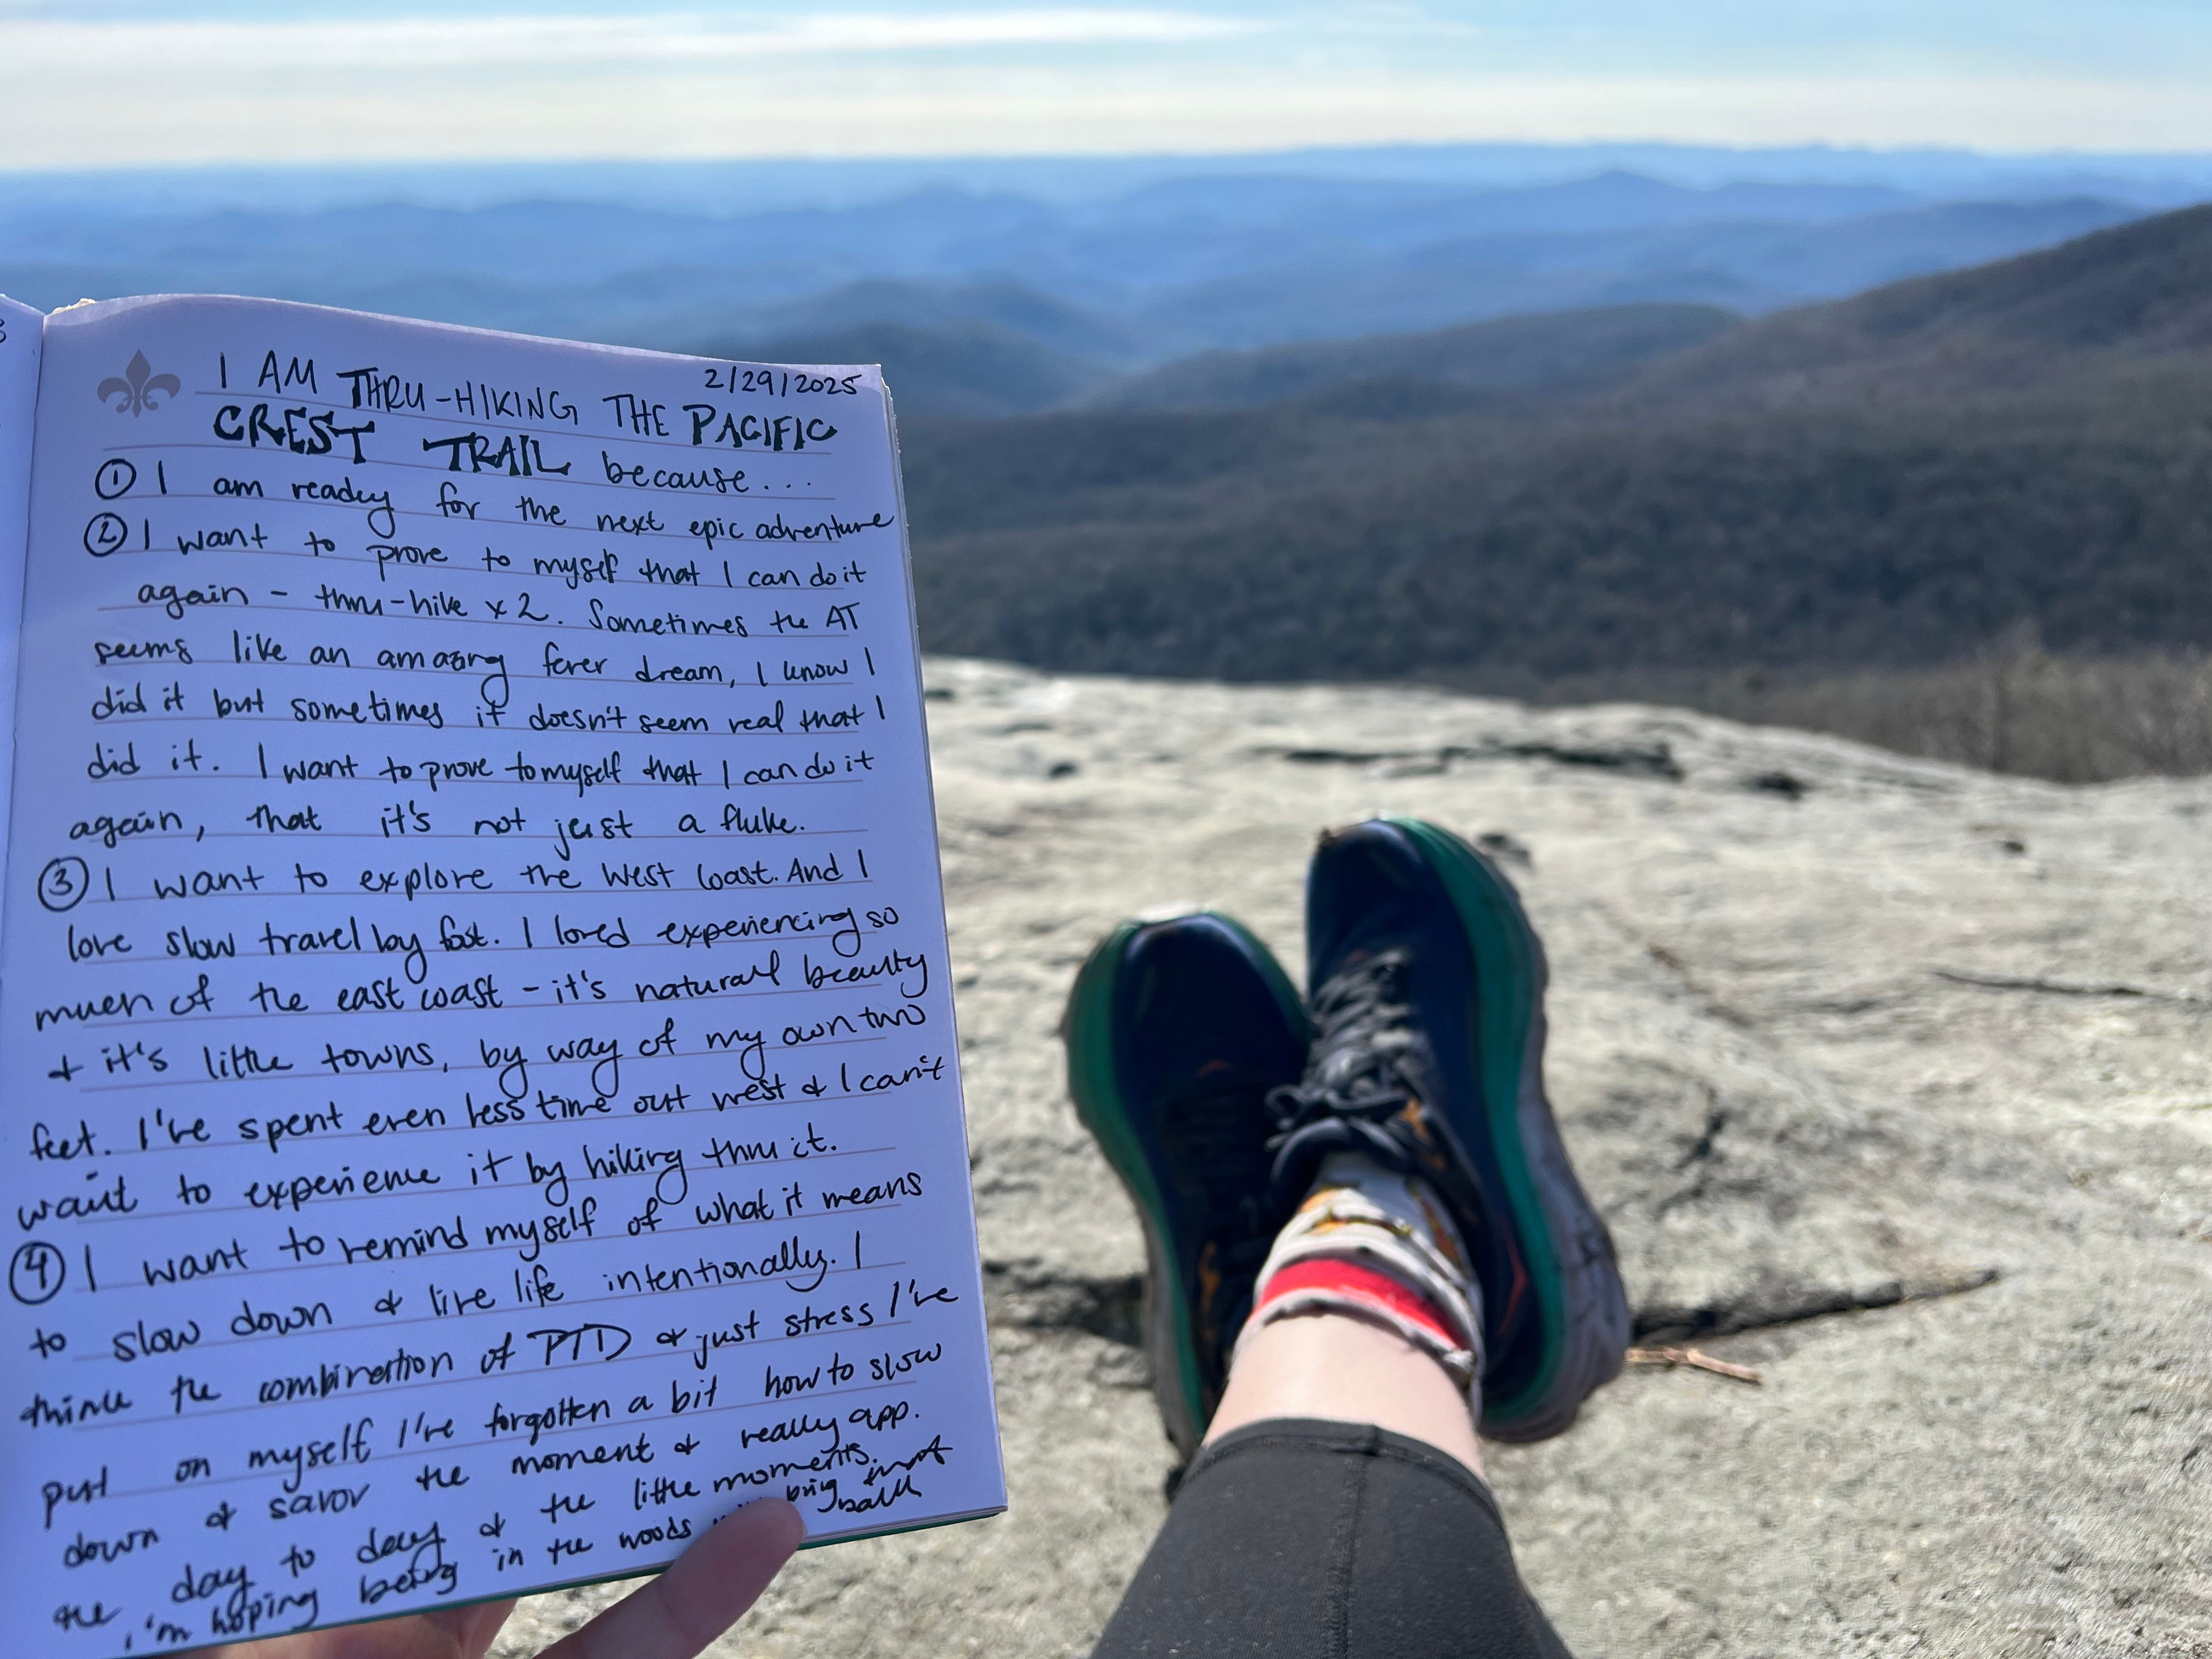 2/29/2025
I AM THRU-HIKING THE PACIFIC
CREST TRAIL because...
① I am ready for the next epic adventure
② I want to prove to myself that I can do it
again - thru-hike x2. Sometimes the AT
seems like an amazing fever dream, I know I
did it but sometimes it doesn't seem real that I
did it. I want to prove to myself that I can do it
again, that it's not just a fluke.
③ I want to explore the West Coast. And I
love slow travel by foot. I loved experiencing so
much of the east coast - it's natural beauty
& it's little towns, by way of my own two
feet. I've spent even less time out west & I can't
wait to experience it by hiking thru it.
④ I want to remind myself of what it means
to slow down & live life intentionally. I
think the combination of PTD & just stress I've
put on myself I've forgotten a bit how to slow
down & savor the moment & really app.
the day to day & the little moments.
i'm hoping being in the woods bring that
back